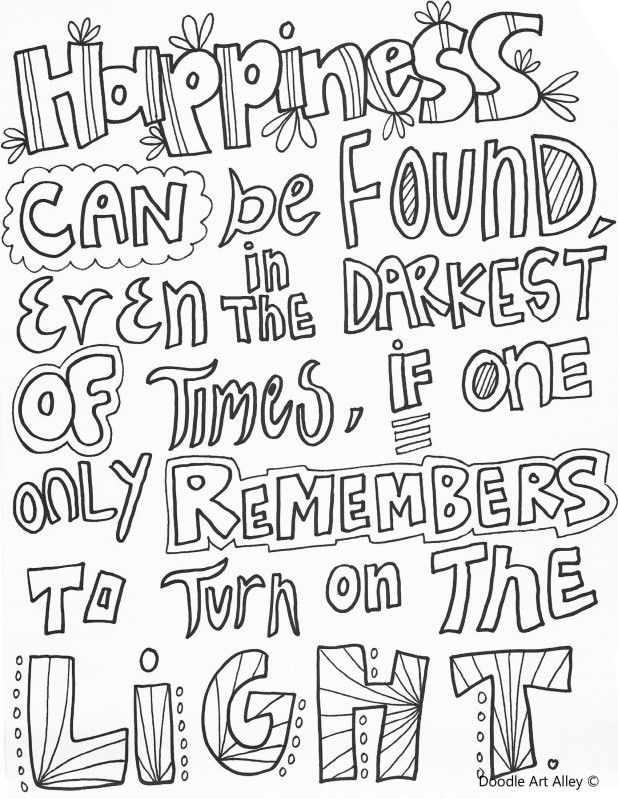 Happiness
CAN be FOUND,
EVEN in THE DARKEST
OF Times, iF ONE
ONLY REMEMBERS
TO Turn on THE
LiGHT.
Doodle Art Alley ©